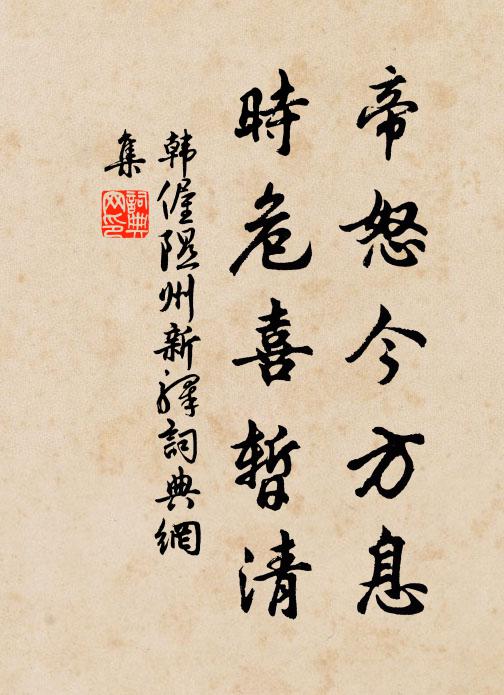 帝怒今方息
時危喜暫清
韓偓隰州新驛詞典網
集
詞典网印